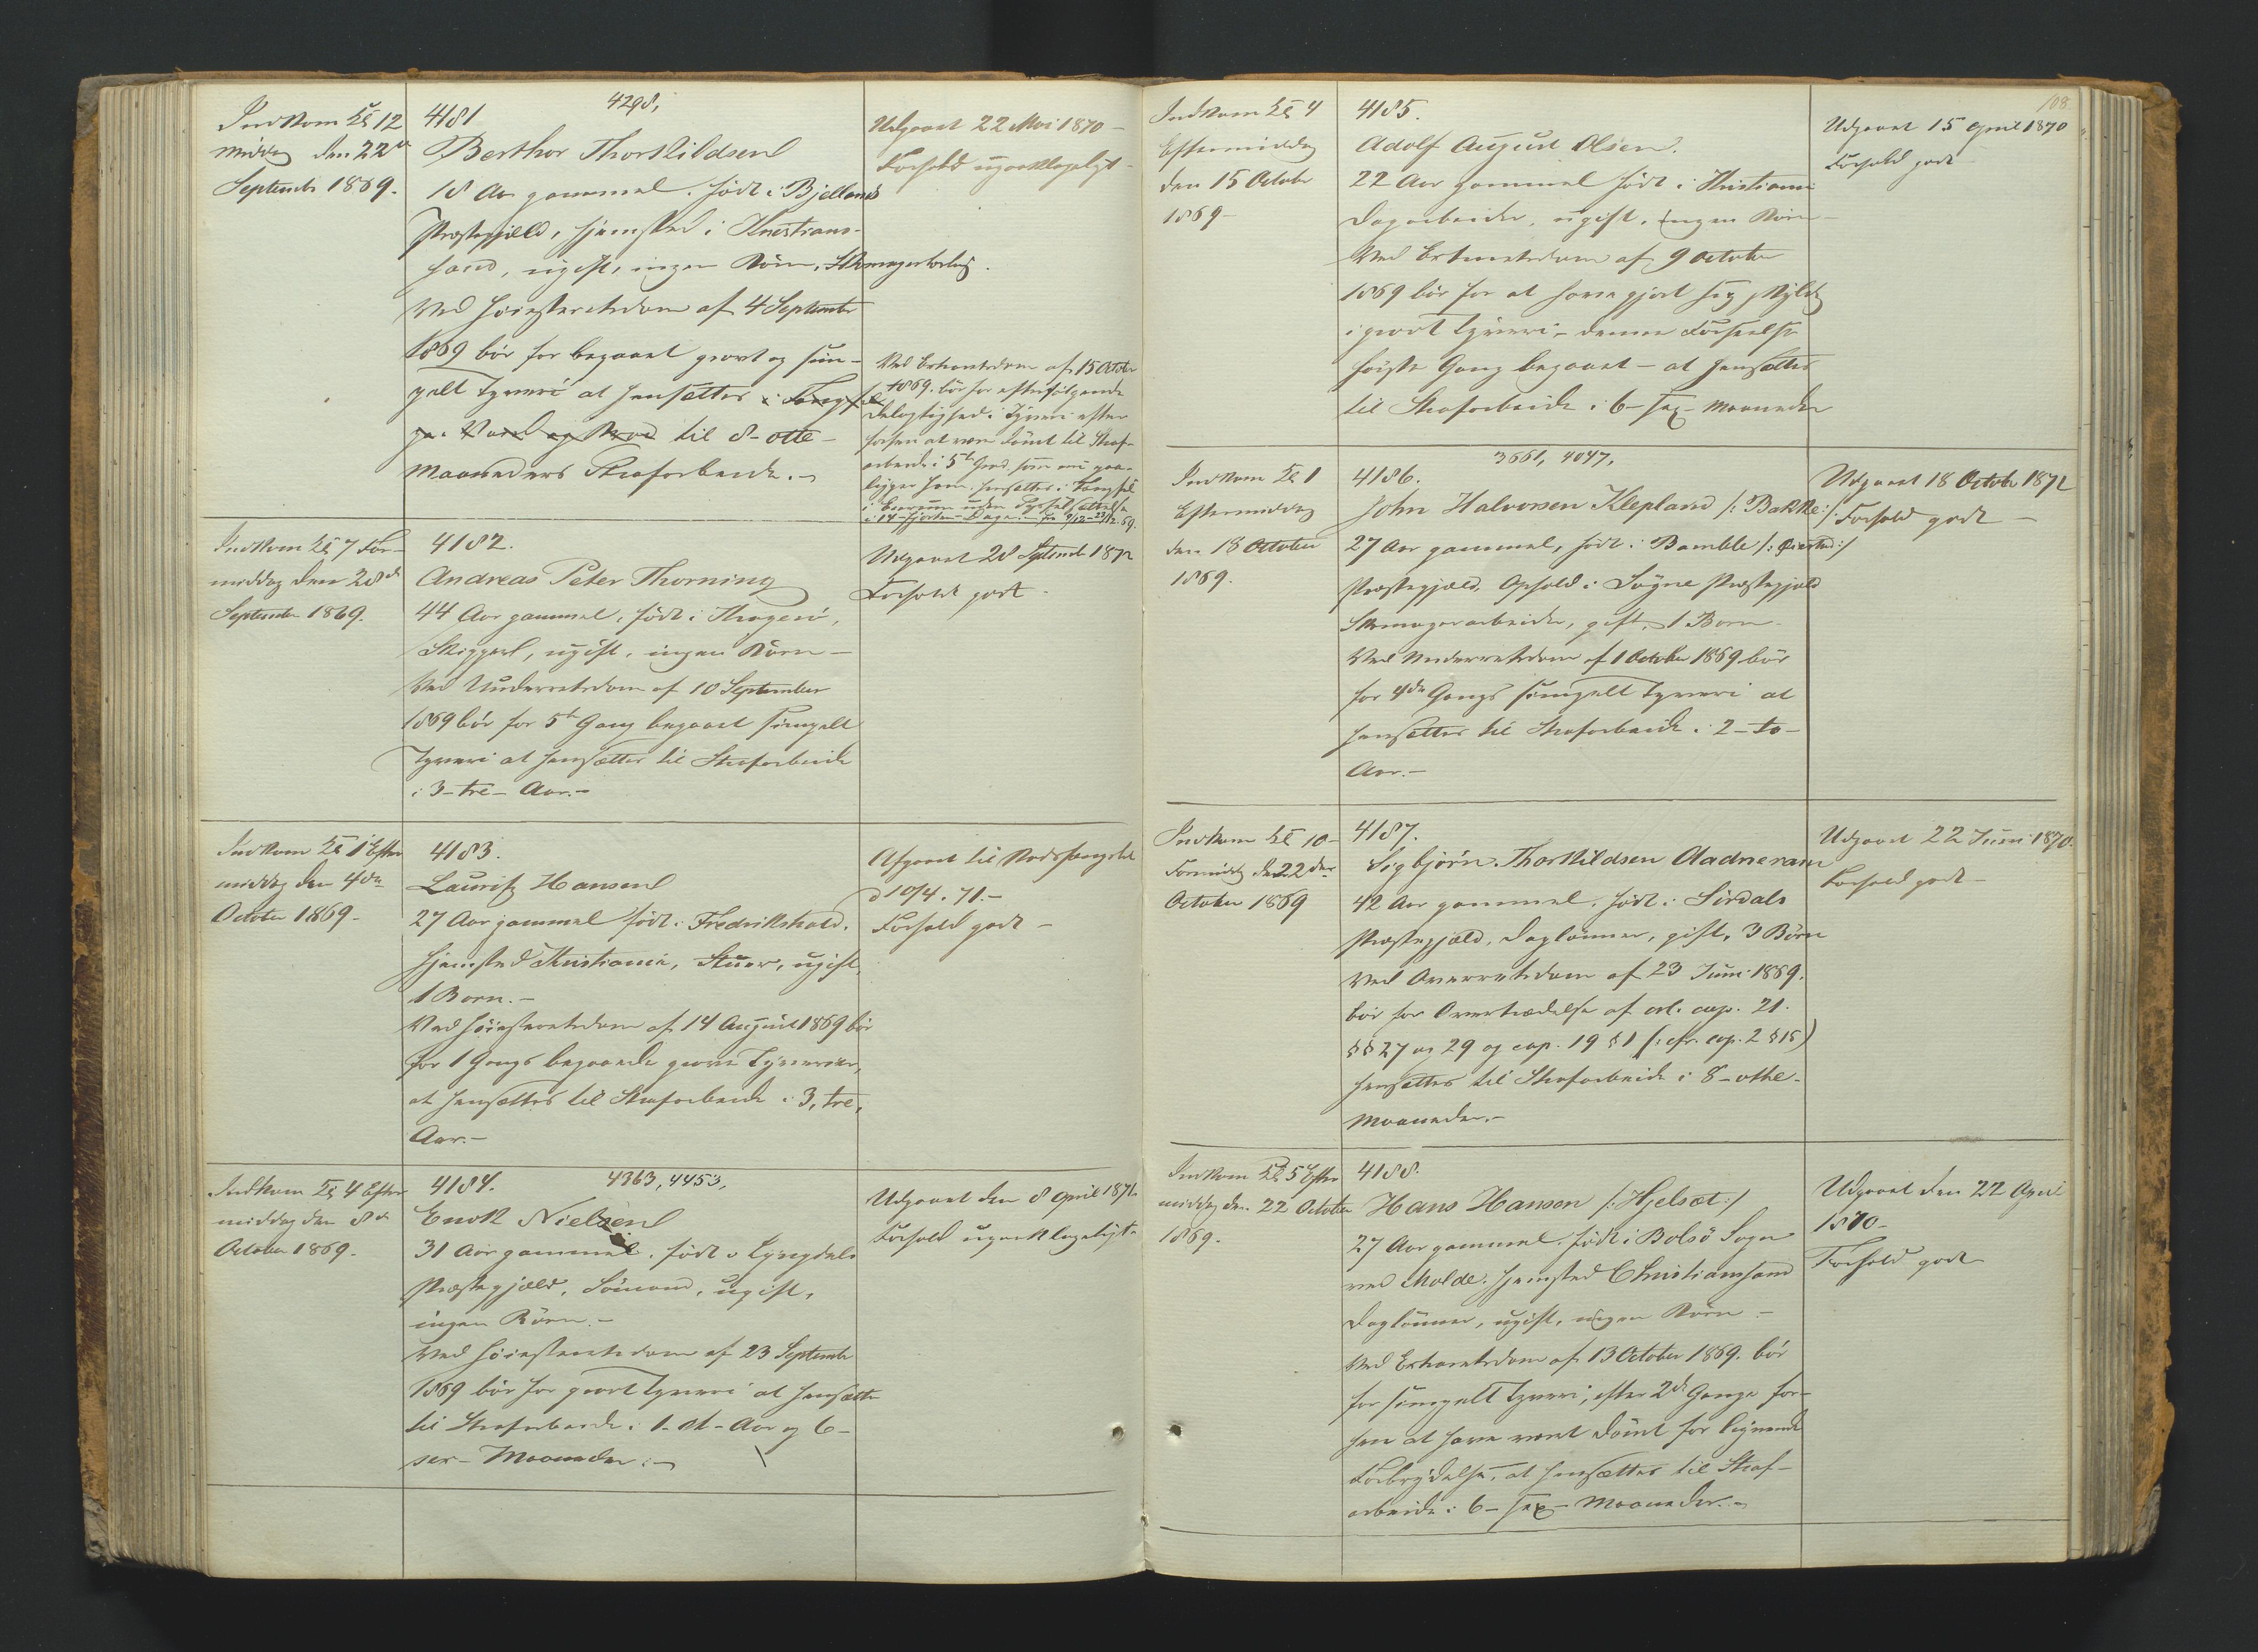 Indkom Kl 12
Middag den 22de
Septembr 1869.
4181
4298,
Berthor Thorkildsen
18 Aar gammel. født i Bjellands
Præstegjæld, hjemsted i Christians-
sand, ugift, ingen Børn, Skomagerlærling.
Ved Høiesteretsdom af 4 September
1869 bør for begaaet grovt og sim-
pelt Tyveri at hensættes i Fængsel
paa Vand og Brød til 8 - otte -
Maaneders Strafarbeide. -
Udgaaet 22 Mai 1870 -
Forhold upaaklageligt -
Ved Extraretsdom af 15 October
1869. bør for efterfølgende
Delagtighed i Tyveri efter
forhen at være dømt til Straf-
arbeide i 5te Grad som nu paa-
ligger ham. hensættes i Fængsel
i Eenrum uden Sysselsættelse
i 14 - fjorten - Dage. - fra 9/12 - 23/12 69.
Indkom Kl 7 For-
middag den 28de
September 1869.
4182.
Andreas Peter Thorning
44 Aar gammel, født i Kragerø,
Skipper, ugift, ingen Børn -
Ved Underretsdom af 10 September
1869 bør for 5te Gang begaaet simpelt
Tyveri at hensættes til Strafarbeide
i 3 - tre - Aar. -
Udgaaet 28 Septemb 1872
Forhold godt -
Indkom Kl 1 Efter
middag den 4de
October 1869 -
4183.
Lauritz Hansen
27 Aar gammel født i Fredrikshald.
Hjemsted Christiania, Stuer, ugift,
1 Barn. -
Ved Høiesteretsdom af 14 August 1869 bør
for 1 Gangs begaaede grove Tyverier,
at hensættes til Strafarbeide i 3, tre,
Aar. -
Afgaaet til Bodsfængslet
d 10/4. 71. -
Forhold godt -
Indkom Kl 4 Efter
middag den 8de
October 1869 -
4184.
4363, 4453,
Enok Nielsen
31 Aar gammel. født i Lyngdals
Præstegjæld, Sømand, ugift,
ingen Børn. -
Ved Høiesteretsdom af 23 Septembr
1869 bør for grovt Tyveri at hensættes
til Strafarbeide i 1 - et - Aar og 6 -
sex - Maaneder. -
Udgaaet den 8 April 1871
Forhold upaaklageligt -
108.
Indkom Kl 4
Eftermiddag
den 15 October
1869 -
4185.
Adolf August Olsen.
22 Aar gammel født i Christiania
Dagarbeider, ugift, ingen Børn -
Ved Extraretsdom af 9 October
1869 bør for at have gjort sig skyldig
i grovt Tyveri - denne Forseelse
første Gang begaaet - at hensættes
til Strafarbeide i 6 - sex - Maaneder
Udgaaet 15 April 1870
Forhold godt
Indkom Kl 1
Eftermiddag
den 18 October
1869.
3661, 4047,
4186.
John Halvorsen Klepland /: Bakke :/
27 Aar gammel, født i Bamble /: Øiestad :/
Præstegjæld, Ophold i Søgne Præstegjæld
Skomagerarbeider, gift, 1 Barn -
Ved Underretsdom af 1 October 1869 bør
for 4de Gangs simpelt Tyveri at
hensættes til Strafarbeide i 2 - to -
Aar. -
Udgaaet 18 Octobr 1871
Forhold godt -
Indkom Kl 10 -
Formiddag den 22de
October 1869
4187.
Sigbjørn Thorkildsen Aadneram
42 Aar gammel. født i Sirdals
Præstegjæld, Daglønner, gift, 3 Børn
Ved Overretsdom af 23 Juni 1869.
bør for Overtrædelse af crl. cap. 21.
§§ 27 og 29 og cap. 19 § 1 (: cfr. cap. 2 § 15)
hensættes til Strafarbeide i 8 - otte -
Maaneder. -
Udgaaet 22 Juni 1870.
Forhold godt -
Indkom Kl 5 Efter
middag den 22 October
1869.
4188.
Hans Hansen /: Hjelset :/
27 Aar gammel. født i Bolsø Sogn
ved Molde. Hjemsted Christianssand
Daglønner, ugift, ingen Børn -
Ved Extraretsdom af 13 October 1869. bør
for simpelt Tyveri, efter 2de Gange for-
hen at have været dømt for lignende
Forbrydelse, at hensættes til Straf-
arbeide i 6 - sex - Maaneder. -
Udgaaet den 22 April
1870 -
Forhold godt